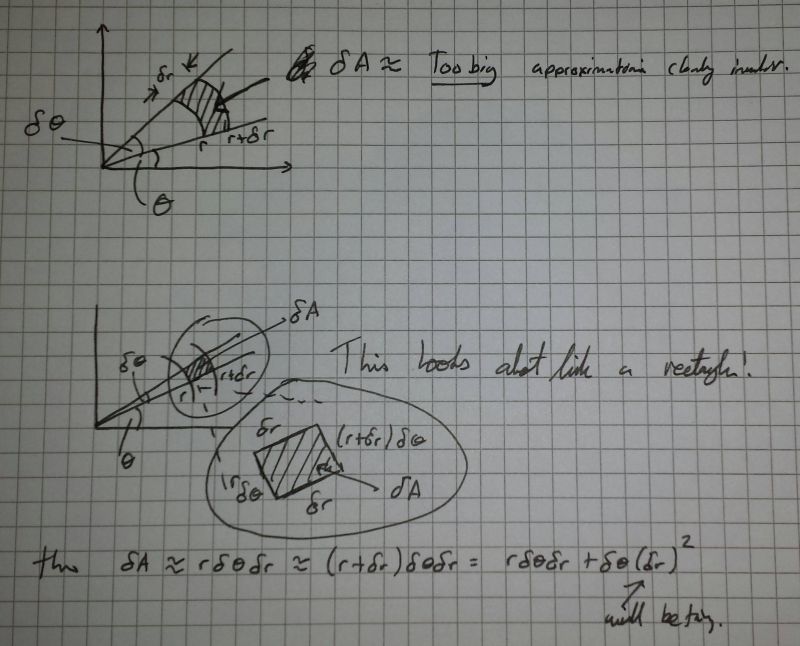 δA ≈ Too big approximation clearly
δr
δθ
r r+δr
θ
δA
δθ
r r+δr
This looks a lot like a rectangle!
θ
δr (r+δr)δθ
rδθ
δr δA
δA ≈ rδθδr ≈ (r+δr)δθδr = rδθδr + δθ(δr)²
will be tiny.